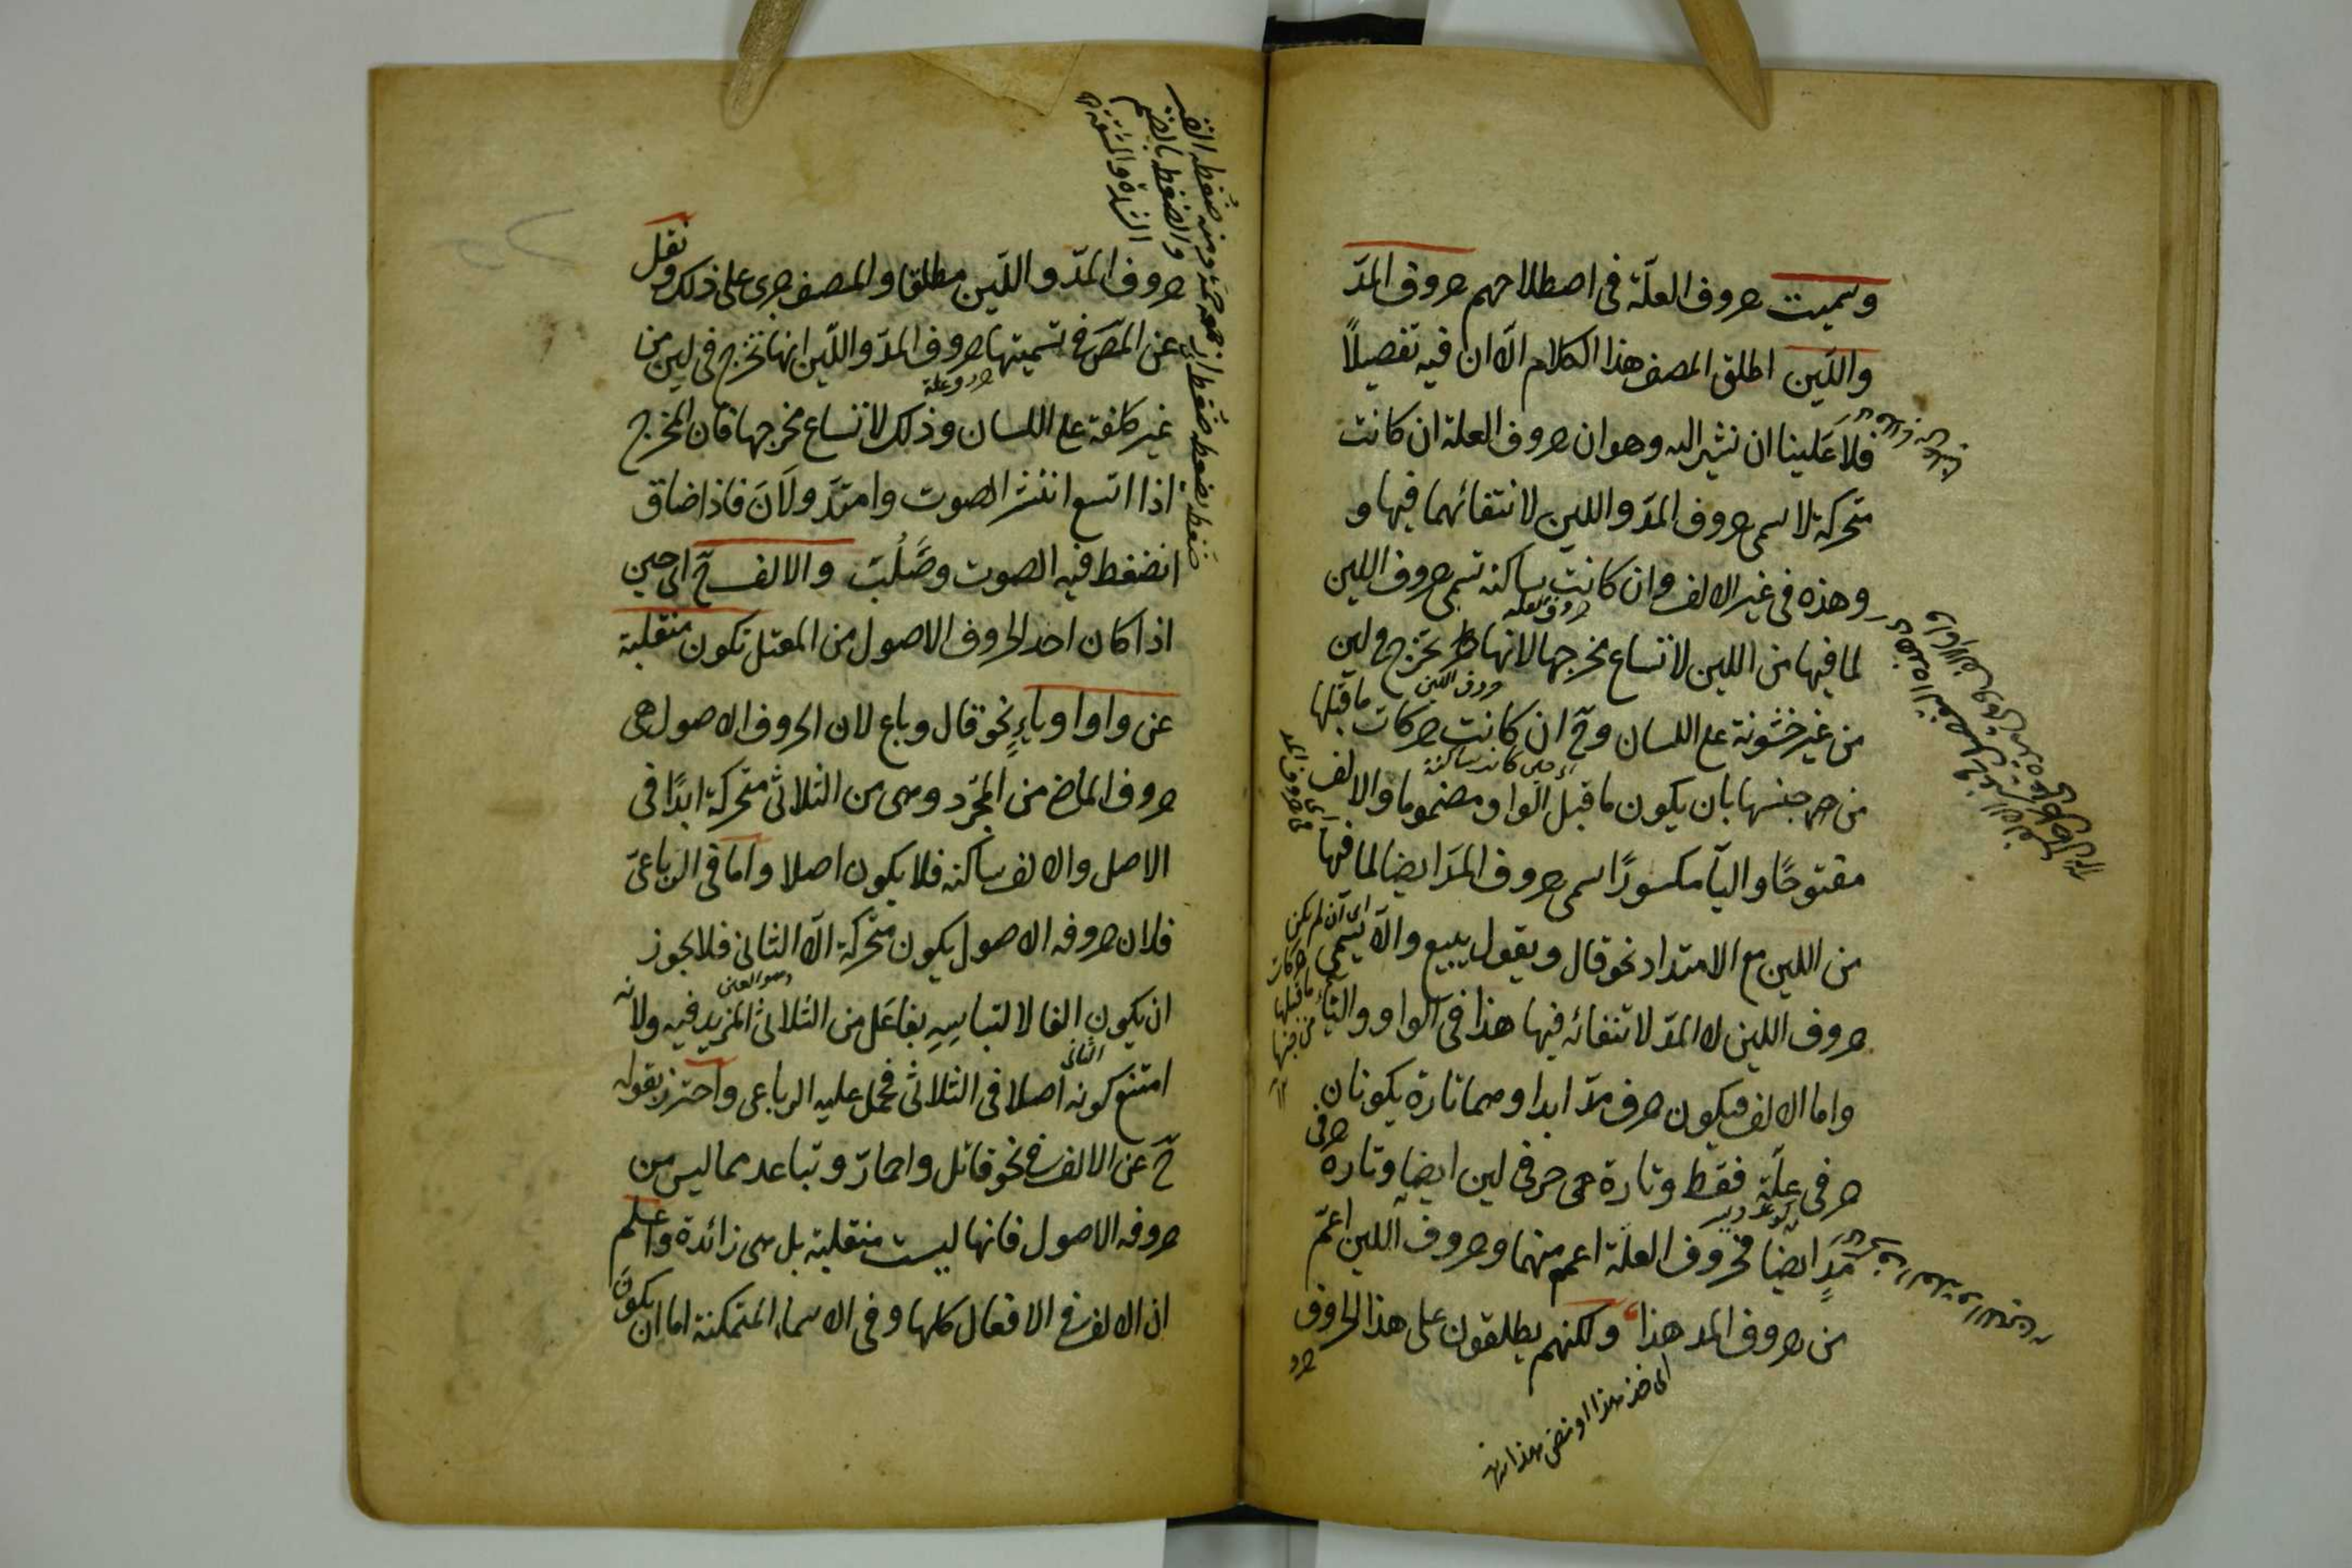 وسميت حروف العلّة فى اصطلاحهم حروف المدّ
واللّين اطلق المصنف هذا الكلام الّا ان فيه تفصيلاً
فلا علينا ان نشير اليه وهو ان حروف العلة ان كانت
متحركة لا تسمى حروف المدّ واللين لانتفائهما فيها و
وهذه فى غير الالف وان كانت ساكنة تسمى حروف اللين
حروف العلة
لما فيها من اللين لاتساع مخرجها لانها تخرج فى لين
من غير خشونة على اللسان وح ان كانت حركات ما قبلها
حروف اللين
من جنسها بان يكون ما قبل الواو مضموما والالف
اى حين كانت ساكنة
مفتوحًا واليآ مكسورًا تسمى حروف المدّ ايضا لما فيها
من اللين مع الامتداد نحو قال ويقول يبيع والّا يسمى
حروف اللين لا المدّ لانتفائه فيها هذا فى الواو والياء
اى ان لم يكن
حركات
ما قبلها
من جنسها
١٢
واما الالف فيكون حرف مدّ ابدا وهما تارة يكونان
حرفى علّة فقط وتارة هى حرفى لين ايضا وتارة حرفى
مدٍّ ايضا فحروف العلّة اعم منهما وحروف اللين اعمّ
من حروف المد هذا ولكنهم يطلقون على هذا الحروف
حرو
اى خذ هذا او مضى هذا
حروف المدّ واللّين مطلقا والمصنف جرى على ذلك ونقل
عن المص فى تسميتها حروف المدّ واللّين انها تخرج فى لين من
حروف علة
غير كلفة على اللسان وذلك لاتساع مخرجها فان المخرج
اذا اتسع انتشر الصوت وامتدّ ولَانَ فاذا ضاق
انضغط فيه الصوت وصَلُبَت والالف ح اى حين
اذا كان احد الحروف الاصول من المعتل تكون منقلبة
عن واو او ياءٍ نحو قال وباع لان الحروف الاصول هى
حروف الماضى من المجرّد وهى من الثلاثى متحركة ابدًا فى
الاصل والالف ساكنة فلا يكون اصلا واما فى الرباعىّ
فلان حروفه الاصول يكون متحركة الّا الثانى فلا يجوز
وهو العين
ان يكون الفا لالتباسِهِ بفاعَل من الثلاثى المزيد فيه ولانه
الثانى
امتنع كونه اصلا فى الثلاثى فحمل عليه الرباعى واحترز بقوله
حّ عن الالف فى نحو قاتل واحمارّ وتباعد مما ليس من
حروفه الاصول فانها ليست منقلبة بل هى زائدة واعلم
ان الالف فى الافعال كلها وفى الاسماء المتمكنة اما ان يكون
والضغطة بالضم
الشدة والمشقة